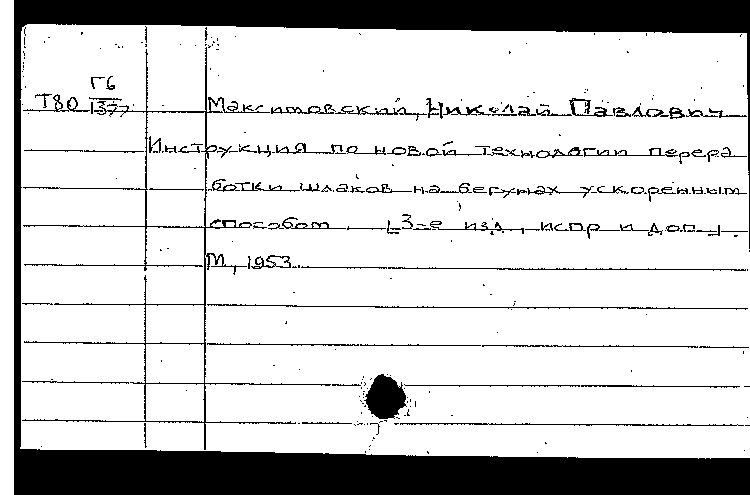 Г6
Т80 1377
Максимовский, Николай Павлович
Инструкция по новой технологии перера
ботки шлаков на бегунах ускоренным
способом. [3-е изд., испр и доп.].
М., 1953.